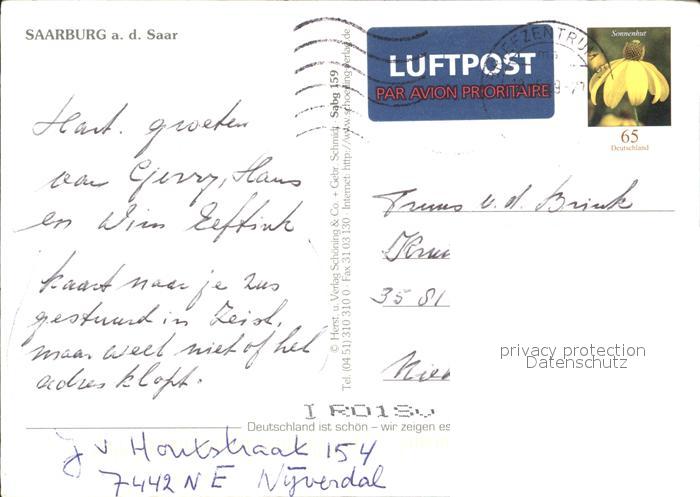 SAARBURG a. d. Saar
LUFTPOST
PAR AVION PRIORITAIRE
BRIEFZENTRUM
Sonnenhut
65
Deutschland
Hart. groeten
van Gerry, Hans
en Wim Eeftink
kaart naar je zus
gestuurd in Zeist,
maar weet niet of het
adres klopt.
© Herst. u. Verlag Schöning & Co. + Gebr. Schmidt Sabg 159
Tel. (04 51) 310 310 0 · Fax 31 03 130 · Internet: http://www.schoening-verlag.de
Truus v.d. Brink
35 81
privacy protection
Datenschutz
Deutschland ist schön – wir zeigen es
J v Houtstraat 154
7442 NE Nijverdal